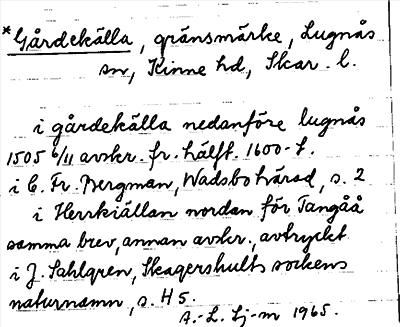 *Gårdekälla, gränsmärke, Lugnås
sn, Kinne hd, Skar. l.
i gårdekälla nedanföre lugnås
1505 6/11 avskr. fr. hälft. 1600-t.
i C. Fr. Bergman, Wadsbo härad, s. 2
i Herrkiällan nordan för Tangåå
samma brev, annan avskr., avtryckt
i J. Sahlgren, Skagershults sockens
naturnamn, s. 45.
A.-L. Lj-m 1965.